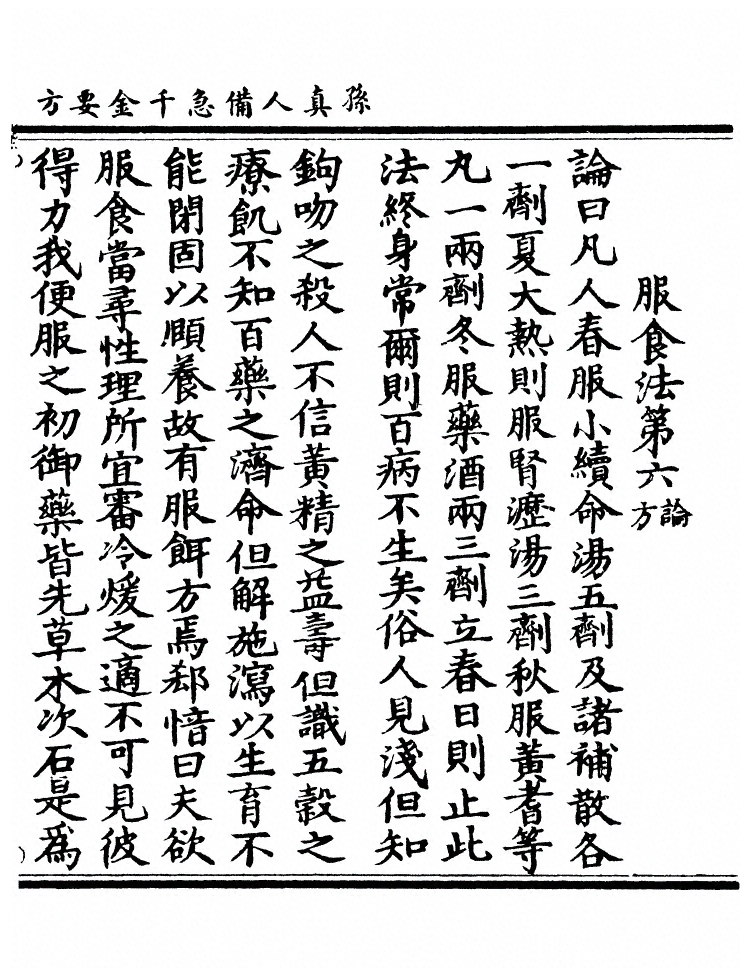 孫真人備急千金要方
服食法第六論方
論曰凡人春服小續命湯五劑及諸補散各
一劑夏大熱則服腎瀝湯三劑秋服黃耆等
丸一兩劑冬服藥酒兩三劑立春日則止此
法終身常爾則百病不生矣俗人見淺但知
鉤吻之殺人不信黃精之益壽但識五穀之
療飢不知百藥之濟命但解施瀉以生育不
能閉固以頤養故有服餌方焉郄愔曰夫欲
服食當尋性理所宜審冷煖之適不可見彼
得力我便服之初御藥皆先草木次石是為